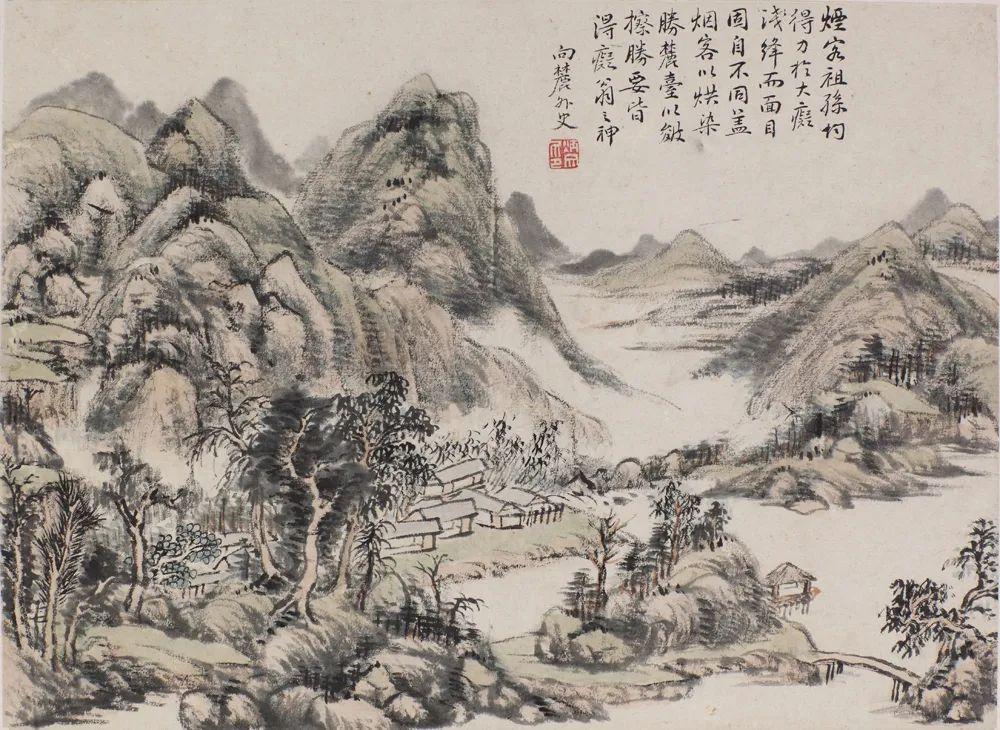 煙客祖孫均
得力於大癡
淺絳而面目
固自不同蓋
烟客以烘染
勝麓臺以皴
擦勝要皆
得癡翁之神
向麓外史